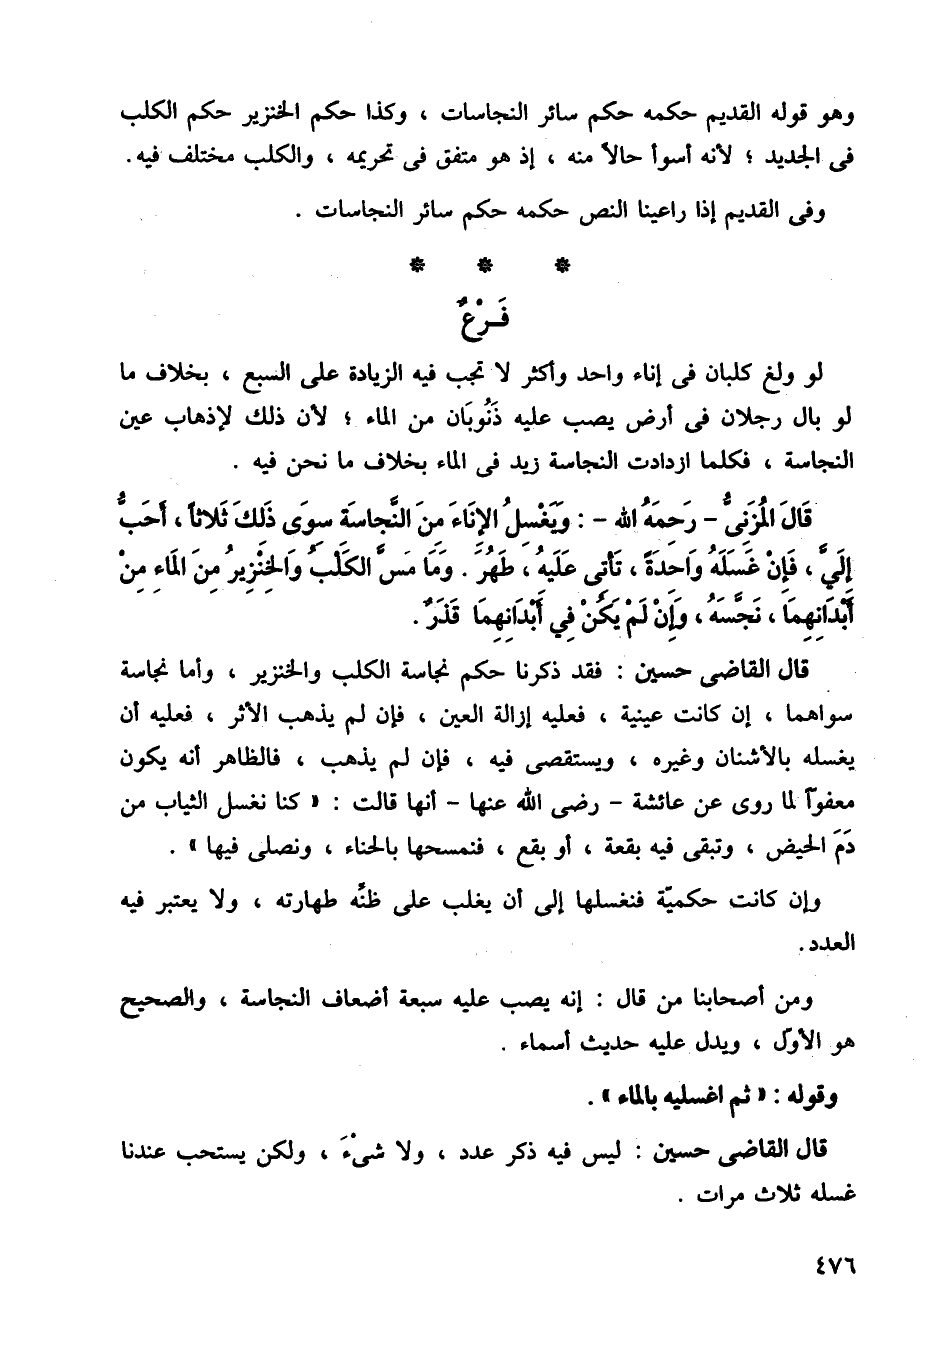 وهو قوله القديم حكمه حكم سائر النجاسات ، وكذا حكم الخنزير حكم الكلب
فى الجديد ؛ لأنه أسوأ حالاً منه ، إذ هو متفق فى تحريمه ، والكلب مختلف فيه .
وفى القديم إذا راعينا النص حكمه حكم سائر النجاسات .
* * *
فَـرْعٌ
لو ولغ كلبان فى إناء واحد وأكثر لا تجب فيه الزيادة على السبع ، بخلاف ما
لو بال رجلان فى أرض يصب عليه ذَنُوبَان من الماء ؛ لأن ذلك لإذهاب عين
النجاسة ، فكلما ازدادت النجاسة زيد فى الماء بخلاف ما نحن فيه .
قَالَ المُزَنِىُّ – رَحِمَهُ الله – : وَيَغْسِلُ الإِنَاءَ مِنَ النَّجِاسَةِ سِوَى ذَلِكَ ثَلاثاً ، أَحَبُّ
إِلَيَّ ، فَإِنْ غَسَلَهُ وَاحِدَةً ، تَأتِى عَلَيْهِ ، طَهُرَ . وَمَا مَسَّ الكَلْبُ وَالخِنْزِيرُ مِنَ المَاءِ مِنْ
أَبْدَانِهِمَا ، نَجَّسَهُ ، وَإِنْ لَمْ يَكُنْ فِي أَبْدَانِهِمَا قَذَرٌ .
قال القاضى حسين : فقد ذكرنا حكم نجاسة الكلب والخنزير ، وأما نجاسة
سواهما ، إن كانت عينية ، فعليه إزالة العين ، فإن لم يذهب الأثر ، فعليه أن
يغسله بالأشنان وغيره ، ويستقصى فيه ، فإن لم يذهب ، فالظاهر أنه يكون
معفوّاً لما روى عن عائشة – رضى الله عنها – أنها قالت : « كنا نغسل الثياب من
دَمَ الحيض ، وتبقى فيه بقعة ، أو بقع ، فنمسحها بالحناء ، ونصلى فيها » .
وإن كانت حكميّة فنغسلها إلى أن يغلب على ظنَّه طهارته ، ولا يعتبر فيه
العدد .
ومن أصحابنا من قال : إنه يصب عليه سبعة أضعاف النجاسة ، والصحيح
هو الأوّل ، ويدل عليه حديث أسماء .
وقوله : « ثم اغسليه بالماء » .
قال القاضى حسين : ليس فيه ذكر عدد ، ولا شىْءَ ، ولكن يستحب عندنا
غسله ثلاث مرات .
٤٧٦